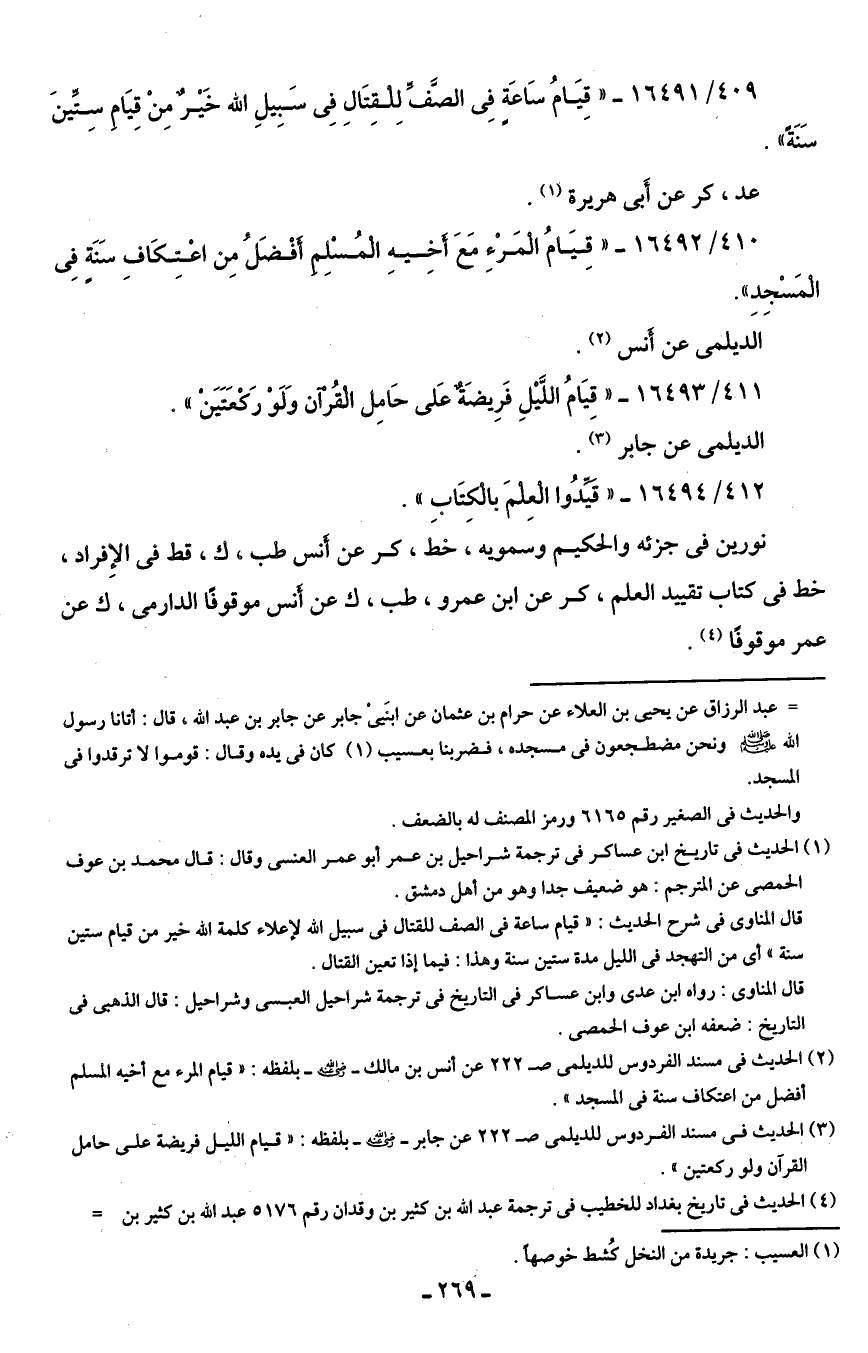 ١٦٤٩١/٤٠٩ ـ « قِيَامُ سَاعَةٍ فِى الصَّفِّ لِلْقِتَالِ فِى سَبِيلِ الله خَيْرٌ مِنْ قِيَامِ سِتِّينَ
سَنَةً» .
عد ، كر عن أَبى هريرة (١) .
١٦٤٩٢/٤١٠ ـ « قِيَامُ المَرْءِ مَعَ أَخِيهِ المُسْلِمِ أَفْضَلُ مِن اعْتِكَافِ سَنَةٍ فِى
المَسْجِدِ».
الديلمى عن أَنس (٢) .
١٦٤٩٣/٤١١ ـ « قِيَامُ اللَّيْلِ فَرِيضَةٌ عَلَى حَامِلِ القُرْآن وَلَوْ رَكْعَتَيَنْ » .
الديلمى عن جابر (٣) .
١٦٤٩٤/٤١٢ ـ « قَيِّدُوا الْعِلْمَ بالْكِتَابِ » .
نورين فى جزئه والحكيم وسمويه ، خط ، كر عن أَنس طب ، ك ، قط فى الإِفراد ،
خط فى كتاب تقييد العلم ، كر عن ابن عمرو ، طب ، ك عن أَنس موقوفًا الدارمى ، ك عن
عمر موقوفًا (٤) .
= عبد الرزاق عن يحيى بن العلاء عن حرام بن عثمان عن ابنَىْ جابر عن جابر بن عبد الله ، قال : أتانا رسول
الله ﷺ ونحن مضطجعون فى مسجده ، فضربنا بعسيب (١) كان فى يده وقال : قوموا لا ترقدوا فى
المسجد.
والحديث فى الصغير رقم ٦١٦٥ ورمز المصنف له بالضعف .
(١) الحديث فى تاريخ ابن عساكر فى ترجمة شراحيل بن عمر أبو عمر العنسى وقال : قال محمد بن عوف
الحمصى عن المترجم : هو ضعيف جدا وهو من أهل دمشق .
قال المناوى فى شرح الحديث : « قيام ساعة فى الصف للقتال فى سبيل الله لإعلاء كلمة الله خير من قيام ستين
سنة » أى من التهجد فى الليل مدة ستين سنة وهذا : فيما إذا تعين القتال .
قال المناوى : رواه ابن عدى وابن عساكر فى التاريخ فى ترجمة شراحيل العبسى وشراحيل : قال الذهبى فى
التاريخ : ضعفه ابن عوف الحمصى .
(٢) الحديث فى مسند الفردوس للديلمى صـ ٢٢٢ عن أنس بن مالك ـ رضي الله عنه ـ بلفظه : « قيام المرء مع أخيه المسلم
أفضل من اعتكاف سنة فى المسجد » .
(٣) الحديث فى مسند الفردوس للديلمى صـ ٢٢٢ عن جابر ـ رضي الله عنه ـ بلفظه : « قيام الليل فريضة على حامل
القرآن ولو ركعتين » .
(٤) الحديث فى تاريخ بغداد للخطيب فى ترجمة عبد الله بن كثير بن وقدان رقم ٥١٧٦ عبد الله بن كثير بن =
(١) العسيب : جريدة من النخل كُشط خوصهاً .
ـ ٢٦٩ ـ